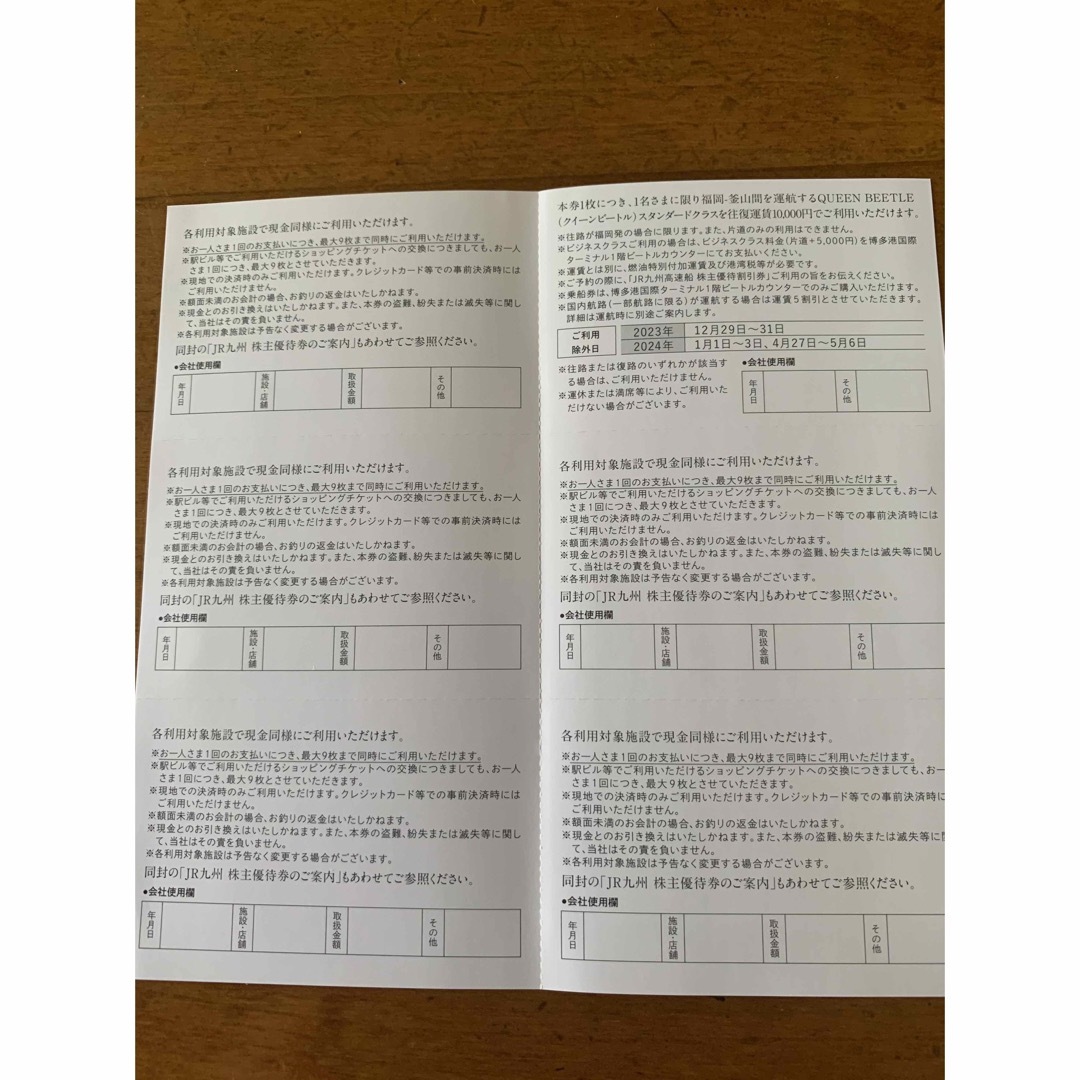 各利用対象施設で現金同様にご利用いただけます。
※お一人さま1回のお支払いにつき、最大9枚まで同時にご利用いただけます。
※駅ビル等でご利用いただけるショッピングチケットへの交換につきましても、お一人
さま1回につき、最大9枚とさせていただきます。
※現地での決済時のみご利用いただけます。クレジットカード等での事前決済時には
ご利用いただけません。
※額面未満のお会計の場合、お釣りの返金はいたしかねます。
※現金とのお引き換えはいたしかねます。また、本券の盗難、紛失または滅失等に関し
て、当社はその責を負いません。
※各利用対象施設は予告なく変更する場合がございます。
同封の「JR九州 株主優待券のご案内」もあわせてご参照ください。
●会社使用欄
年月日 施設・店舗 取扱金額 その他
各利用対象施設で現金同様にご利用いただけます。
※お一人さま1回のお支払いにつき、最大9枚まで同時にご利用いただけます。
※駅ビル等でご利用いただけるショッピングチケットへの交換につきましても、お一人
さま1回につき、最大9枚とさせていただきます。
※現地での決済時のみご利用いただけます。クレジットカード等での事前決済時には
ご利用いただけません。
※額面未満のお会計の場合、お釣りの返金はいたしかねます。
※現金とのお引き換えはいたしかねます。また、本券の盗難、紛失または滅失等に関し
て、当社はその責を負いません。
※各利用対象施設は予告なく変更する場合がございます。
同封の「JR九州 株主優待券のご案内」もあわせてご参照ください。
●会社使用欄
年月日 施設・店舗 取扱金額 その他
各利用対象施設で現金同様にご利用いただけます。
※お一人さま1回のお支払いにつき、最大9枚まで同時にご利用いただけます。
※駅ビル等でご利用いただけるショッピングチケットへの交換につきましても、お一人
さま1回につき、最大9枚とさせていただきます。
※現地での決済時のみご利用いただけます。クレジットカード等での事前決済時には
ご利用いただけません。
※額面未満のお会計の場合、お釣りの返金はいたしかねます。
※現金とのお引き換えはいたしかねます。また、本券の盗難、紛失または滅失等に関し
て、当社はその責を負いません。
※各利用対象施設は予告なく変更する場合がございます。
同封の「JR九州 株主優待券のご案内」もあわせてご参照ください。
●会社使用欄
年月日 施設・店舗 取扱金額 その他
本券1枚につき、1名さまに限り福岡-釜山間を運航するQUEEN BEETLE
（クイーンビートル）スタンダードクラスを往復運賃10,000円でご利用いただけます。
※往路が福岡発の場合に限ります。また、片道のみの利用はできません。
※ビジネスクラスご利用の場合は、ビジネスクラス料金（片道+5,000円）を博多港国際
ターミナル1階ビートルカウンターにてお支払いください。
※運賃とは別に、燃油特別付加運賃及び港湾税等が必要です。
※ご予約の際に、「JR九州高速船 株主優待割引券」ご利用の旨をお伝えください。
※乗船券は、博多港国際ターミナル1階ビートルカウンターでのみご購入いただけます。
※国内航路（一部航路に限る）が運航する場合は運賃5割引とさせていただきます。
詳細は運航時に別途ご案内します。
ご利用除外日 2023年 12月29日～31日
2024年 1月1日～3日、4月27日～5月6日
※往路または復路のいずれかが該当す
る場合は、ご利用いただけません。
※運休または満席等により、ご利用いた
だけない場合がございます。
●会社使用欄
年月日 その他
各利用対象施設で現金同様にご利用いただけます。
※お一人さま1回のお支払いにつき、最大9枚まで同時にご利用いただけます。
※駅ビル等でご利用いただけるショッピングチケットへの交換につきましても、お一人
さま1回につき、最大9枚とさせていただきます。
※現地での決済時のみご利用いただけます。クレジットカード等での事前決済時には
ご利用いただけません。
※額面未満のお会計の場合、お釣りの返金はいたしかねます。
※現金とのお引き換えはいたしかねます。また、本券の盗難、紛失または滅失等に関し
て、当社はその責を負いません。
※各利用対象施設は予告なく変更する場合がございます。
同封の「JR九州 株主優待券のご案内」もあわせてご参照ください。
●会社使用欄
年月日 施設・店舗 取扱金額 その他
各利用対象施設で現金同様にご利用いただけます。
※お一人さま1回のお支払いにつき、最大9枚まで同時にご利用いただけます。
※駅ビル等でご利用いただけるショッピングチケットへの交換につきましても、お一
さま1回につき、最大9枚とさせていただきます。
※現地での決済時のみご利用いただけます。クレジットカード等での事前決済時に
ご利用いただけません。
※額面未満のお会計の場合、お釣りの返金はいたしかねます。
※現金とのお引き換えはいたしかねます。また、本券の盗難、紛失または滅失等に関
て、当社はその責を負いません。
※各利用対象施設は予告なく変更する場合がございます。
同封の「JR九州 株主優待券のご案内」もあわせてご参照ください。
●会社使用欄
年月日 施設・店舗 取扱金額 その他